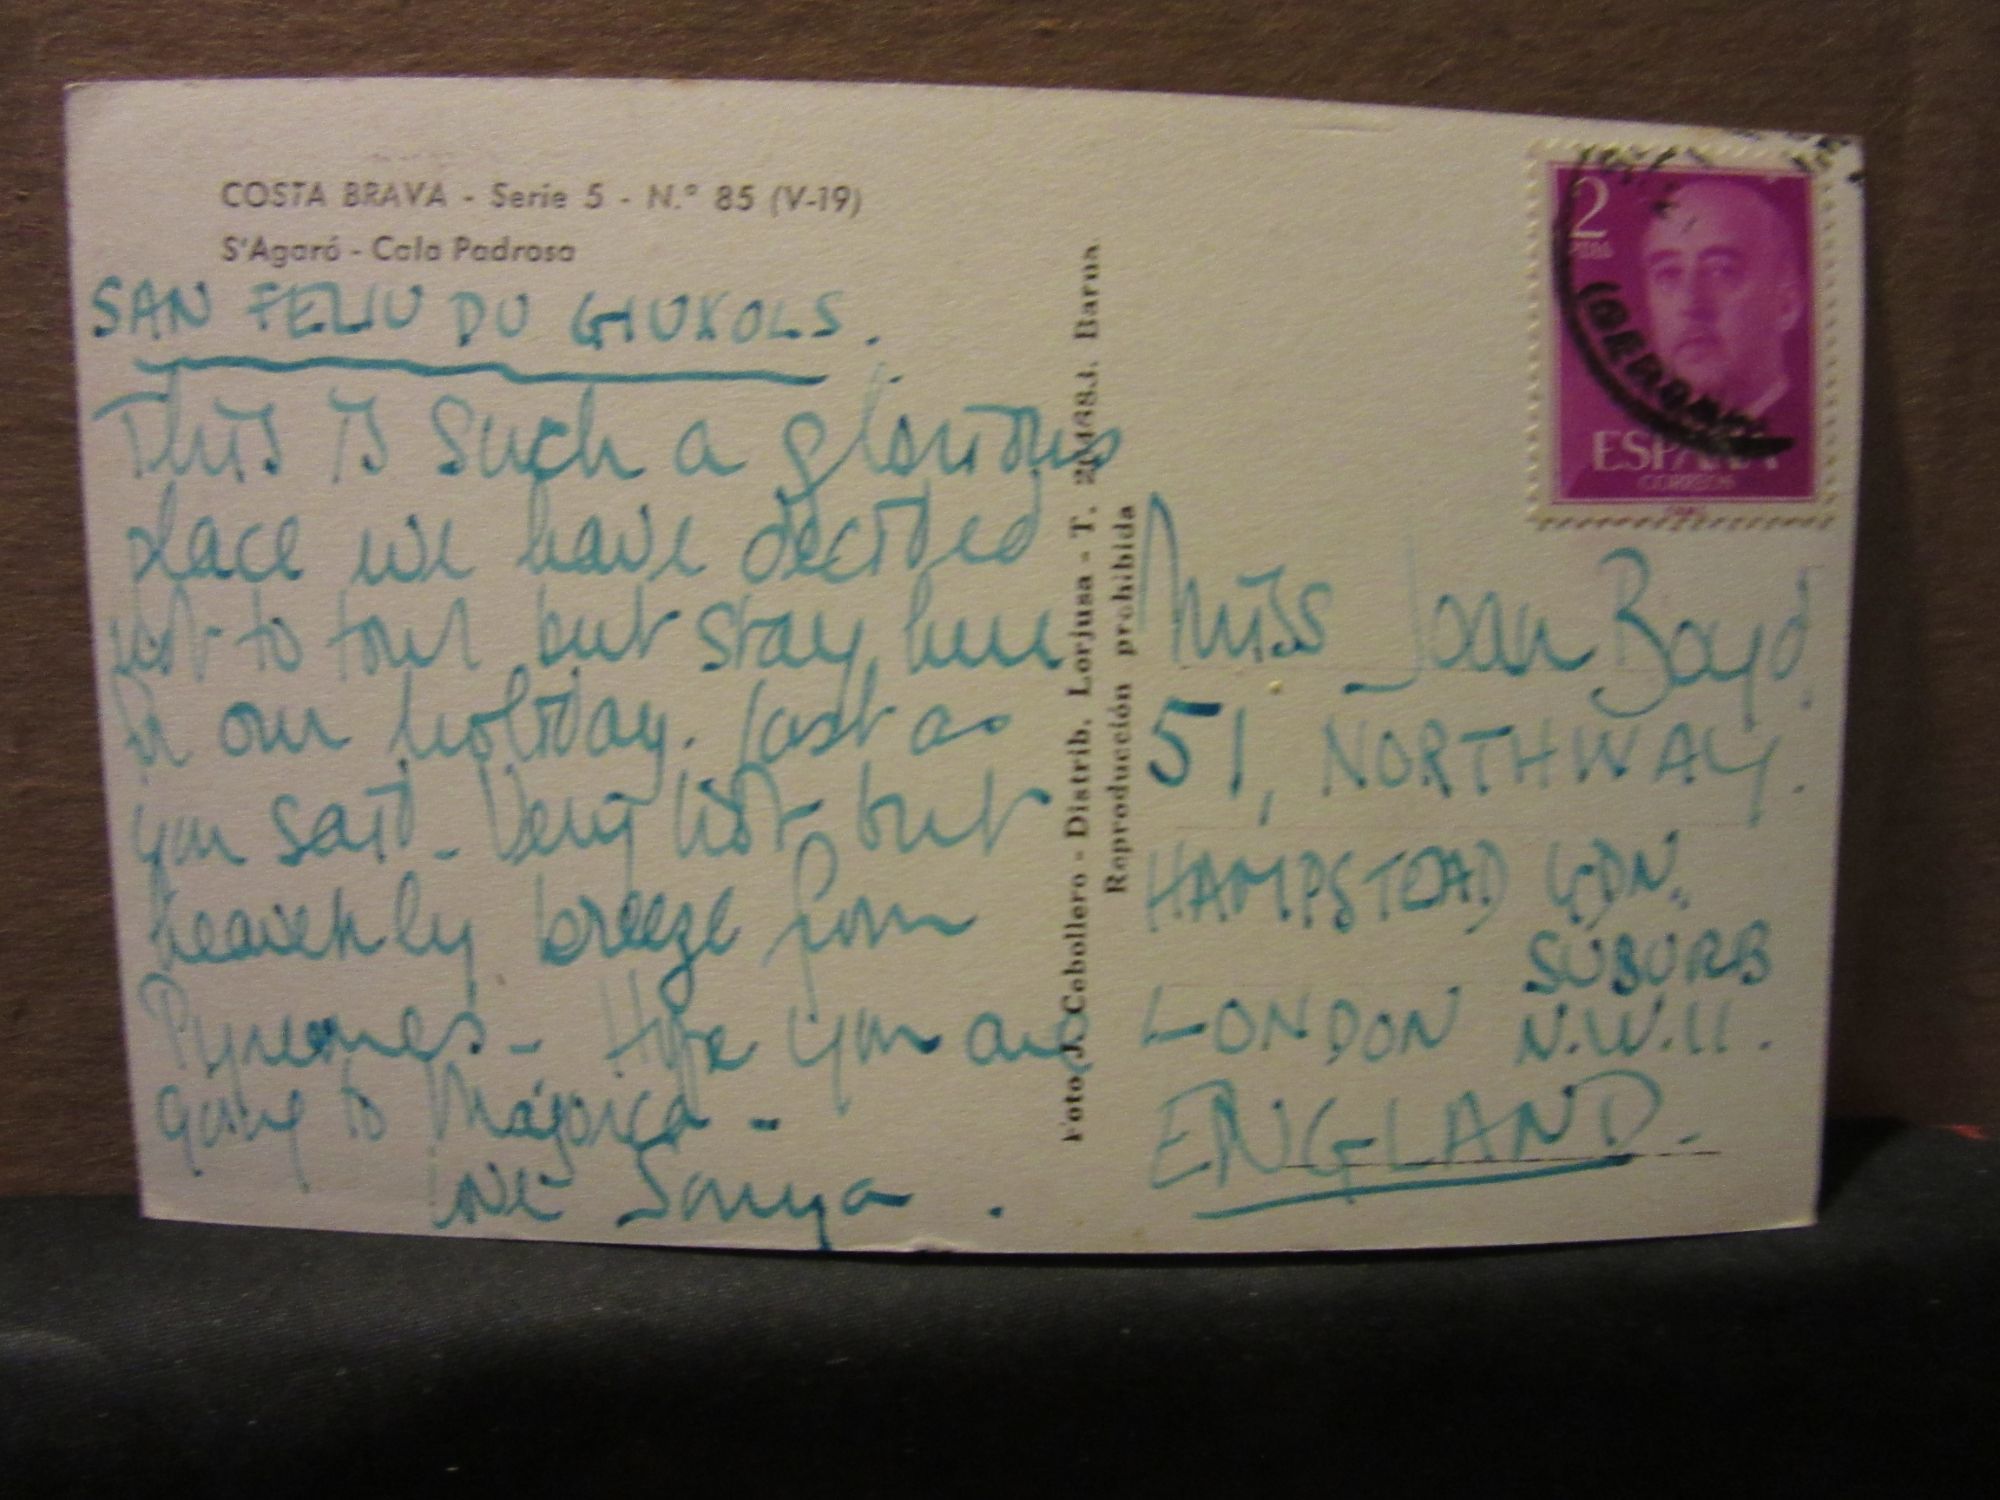 COSTA BRAVA - Serie 5 - N.º 85 (V-19)
S'Agaró - Cala Padrosa
SAN FELIU DU GIUXOLS.
This is such a glorious
place we have decided
not to tour but stay here
for our holiday. Just as
you said - Very hot but
heavenly breeze from
Pyrenees - Hope you are
going to Majorca -
love Sonya.
Foto J. Cebollero - Distrib. Lorjusa - T. Barna.
Reproducción prohibida
2
PTAS
ESPAÑA
CORREOS
Miss Joan Boyd.
51, NORTHWAY.
HAMPSTEAD GDN.
SUBURB
LONDON N.W.11.
ENGLAND.